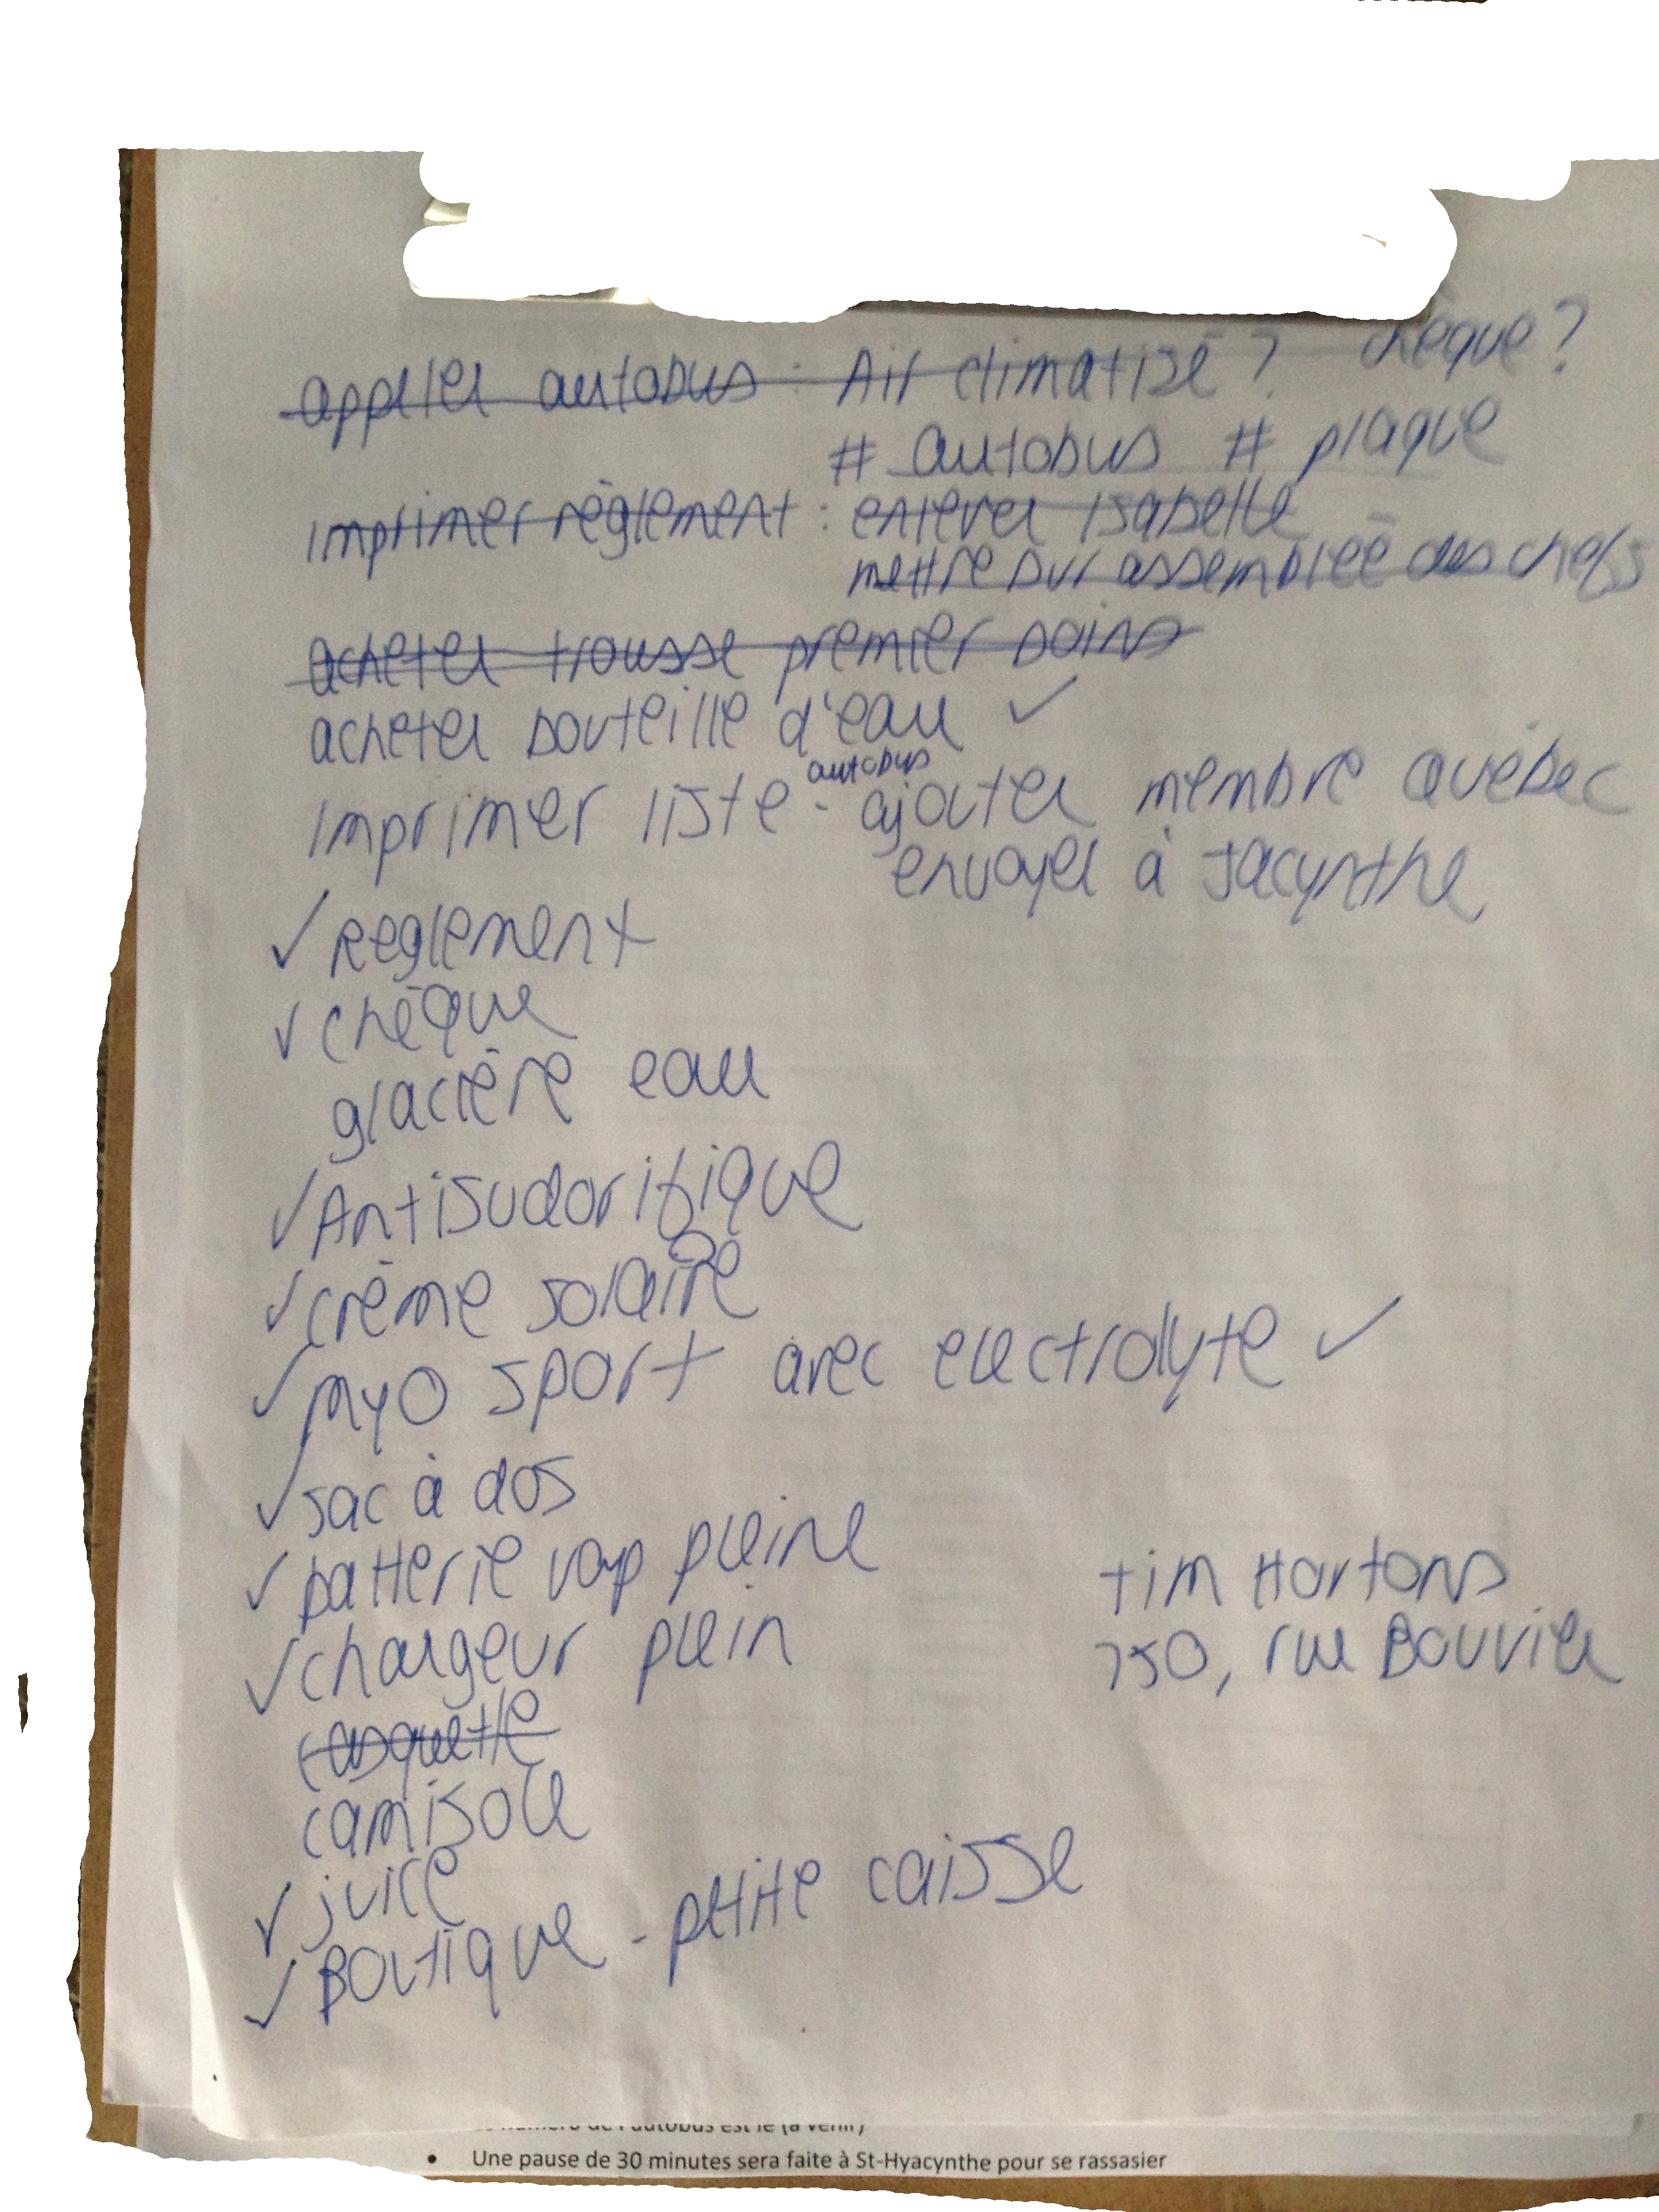 appeler autobus : Air climatisé ? chèque ?
# autobus # plaque
imprimer règlement : enlever Isabelle
mettre sur assemblée des chefs
acheter trousse premier soins
acheter bouteille d'eau ✓
imprimer liste autobus - ajouter membre Québec
envoyer à Jacynthe
✓ Règlement
✓ chèque
glacière eau
✓ Antisudorifique
✓ crème solaire
✓ myo sport avec electrolyte ✓
✓ sac à dos
✓ batterie vap pleine
✓ chargeur plein
Tim Hortons
750, rue Bouvier
casquette
camisole
✓ juice
✓ Boutique - petite caisse
numéro de l'autobus est le (à venir)
• Une pause de 30 minutes sera faite à St-Hyacynthe pour se rassasier